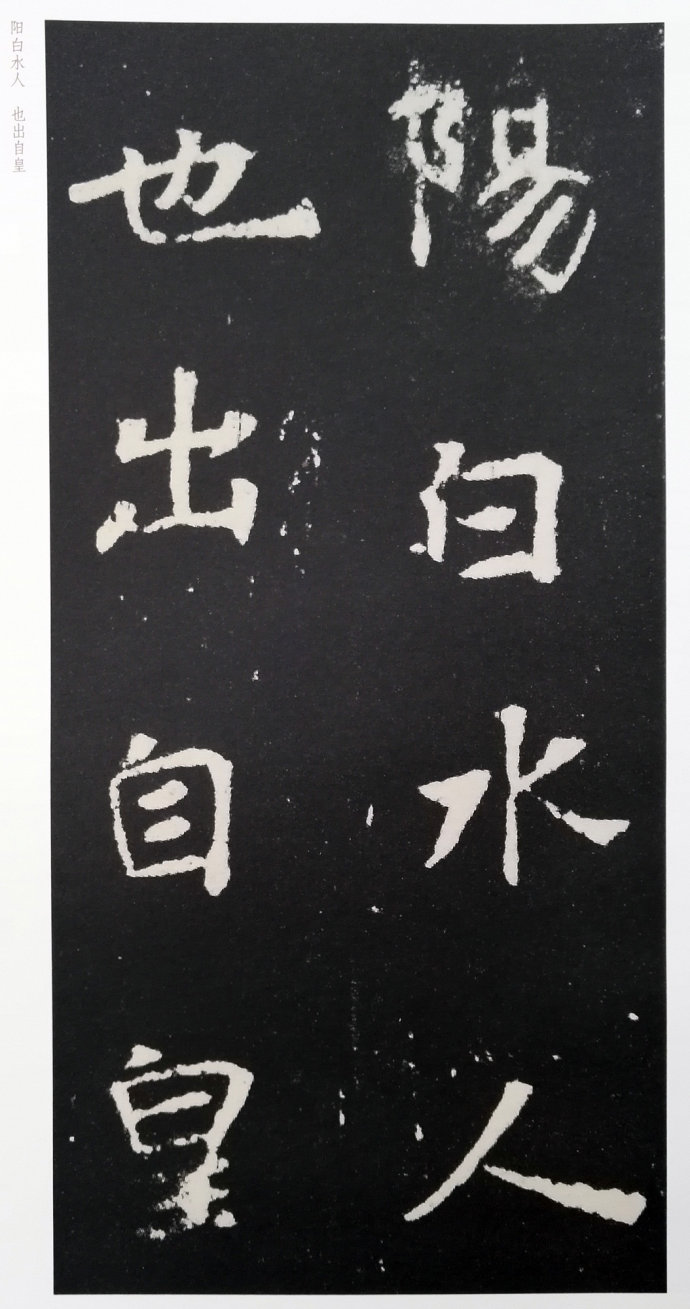 陽白水人
也出自皇
阳白水人 也出自皇